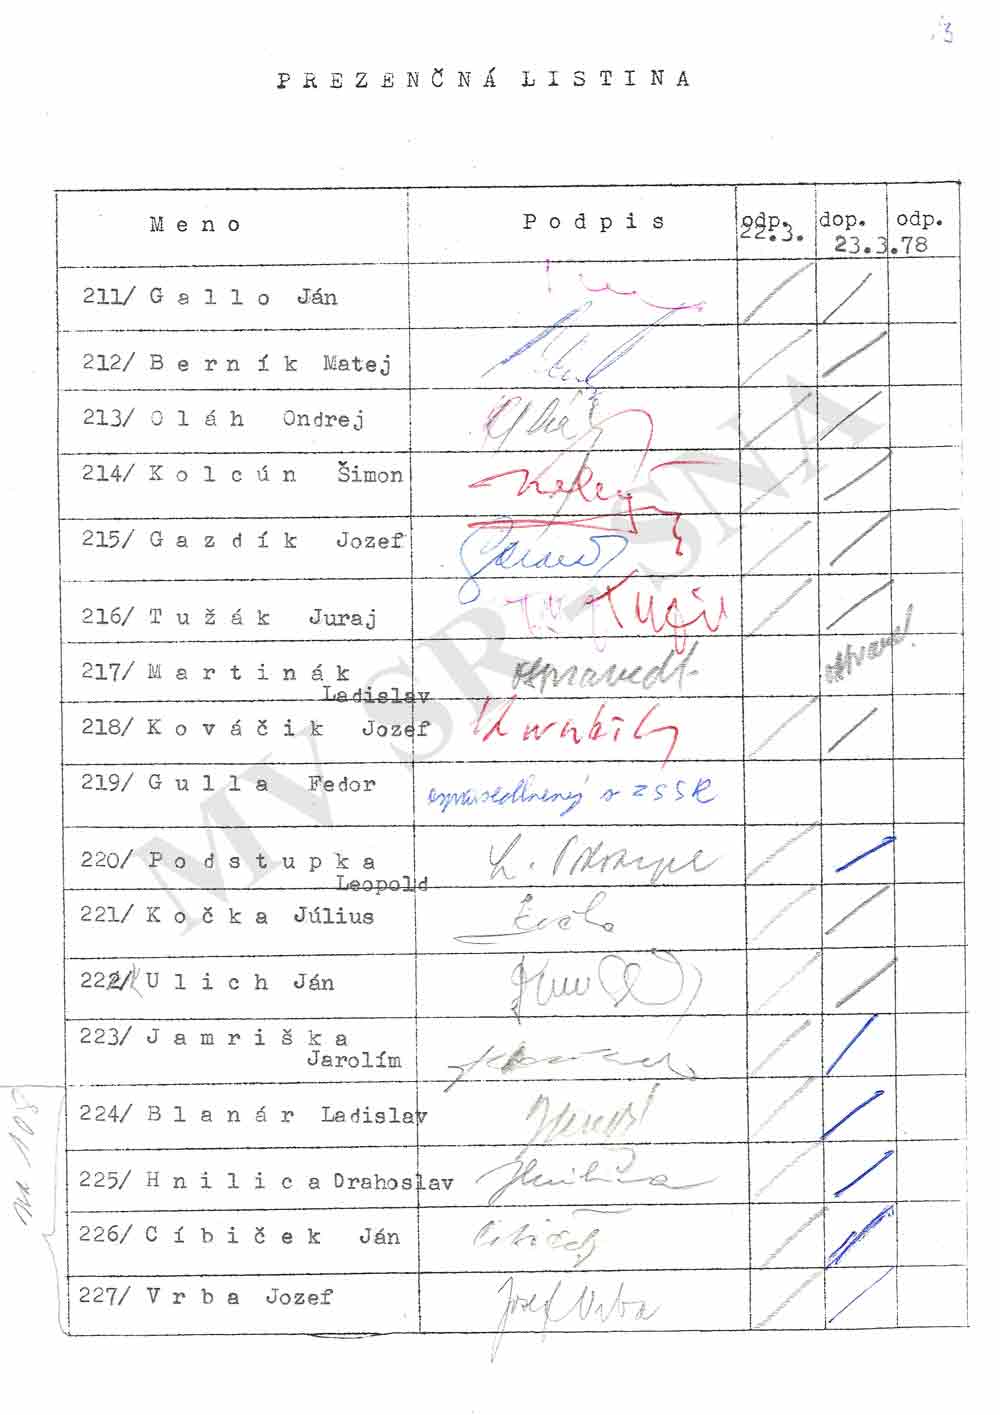 PREZENČNÁ LISTINA
Meno Podpis odp. dop. odp.
22.3. 23.3.78
211/ Gallo Ján
212/ Berník Matej
213/ Oláh Ondrej
214/ Kolcún Šimon
215/ Gazdík Jozef
216/ Tužák Juraj
217/ Martinák ospravedl.
Ladislav
218/ Kováčik Jozef
219/ Gulla Fedor ospravedlnený v ZSSR
220/ Podstupka
Leopold
221/ Kočka Július
222/ Ulich Ján
223/ Jamriška
Jarolím
224/ Blanár Ladislav
225/ Hnilica Drahoslav
226/ Cíbiček Ján
227/ Vrba Jozef Jozef Vrba
na 108
MV SR - SNA